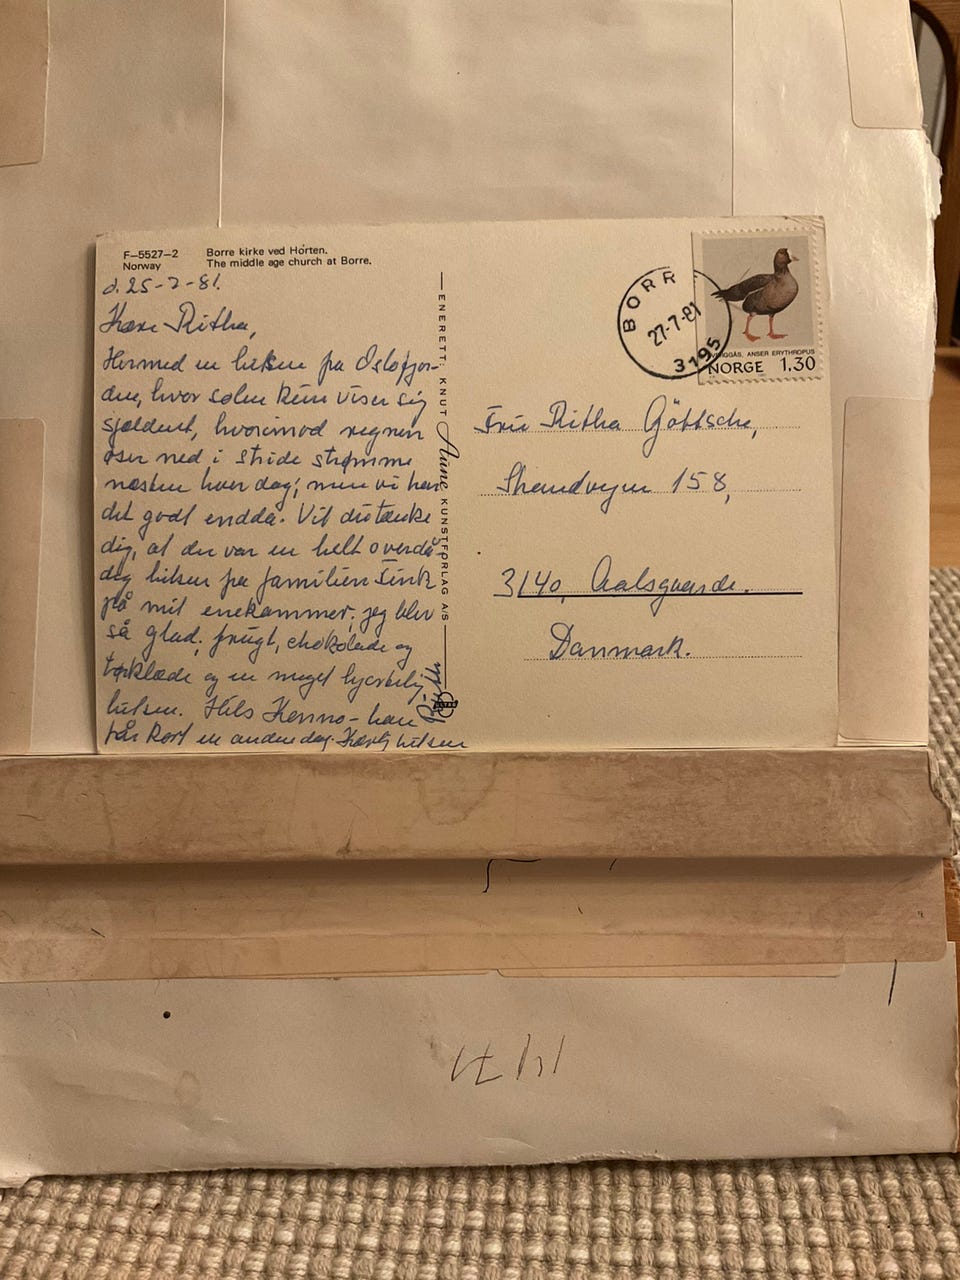 F—5527—2 Borre kirke ved Horten.
Norway The middle age church at Borre.
d. 25-7-81.
Kære Ritha,
Hermed en hilsen fra Oslofjor-
den, hvor solen kun viser sig
sjældent, hvorimod regnen
øser ned i stride strømme
næsten hver dag; men vi har
det godt endda. Vil du tænke
dig, at der var en helt overdå-
dig hilsen fra familien Finck
på mit enekammer; jeg blev
så glad; frugt, chokolade og
tørklæde og en meget hjertelig
hilsen. Hils Henno - han
får kort en anden dag. Kærlig hilsen
ENERETT: KNUT Aune KUNSTFORLAG A/S
BORRE
27-7-81
3195
DVERGGÅS, ANSER ERYTHROPUS
NORGE 1,30
Fru Ritha Göttsche,
Strandvejen 158,
3140, Aalsgaarde.
Danmark.